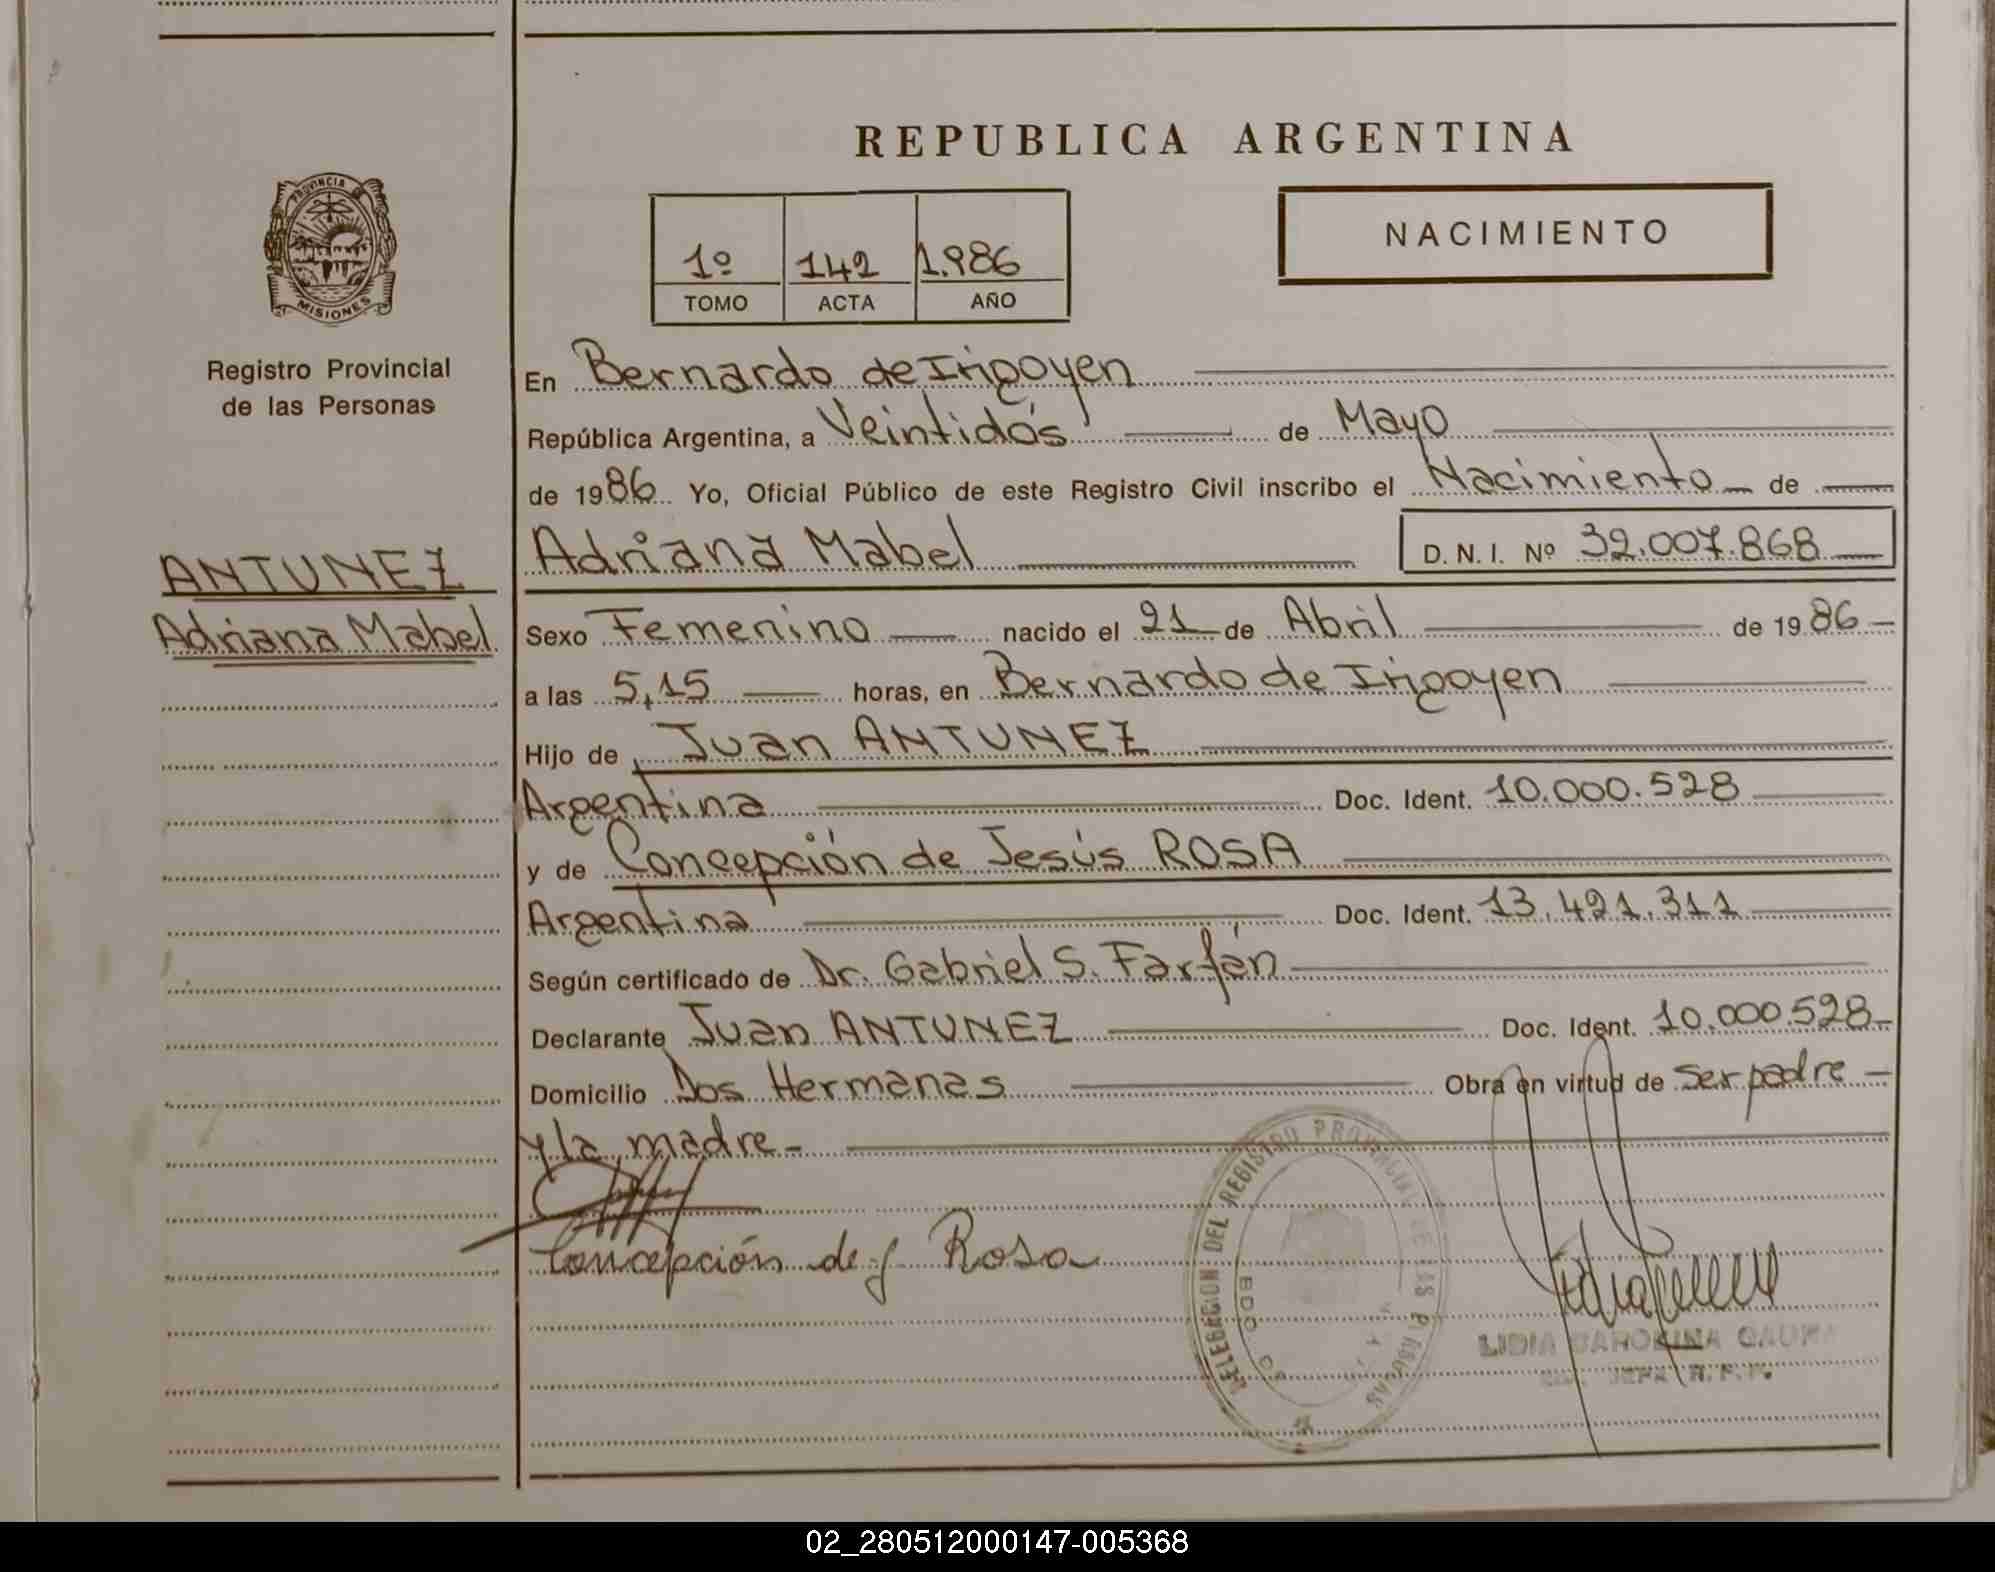 REPUBLICA ARGENTINA
PROVINCIA
MISIONES
Registro Provincial
de las Personas
ANTUNEZ
Adriana Mabel
1º 142 1.986
TOMO ACTA AÑO
NACIMIENTO
En Bernardo de Irigoyen
República Argentina, a Veintidós de Mayo
de 1986 Yo, Oficial Público de este Registro Civil inscribo el Nacimiento de
Adriana Mabel D. N. I. Nº 32.007.868
Sexo Femenino nacido el 21 de Abril de 1986
a las 5,15 horas, en Bernardo de Irigoyen
Hijo de Juan ANTUNEZ
Argentina Doc. Ident. 10.000.528
y de Concepción de Jesús ROSA
Argentina Doc. Ident. 13.421.311
Según certificado de Dr. Gabriel S. Farfán
Declarante Juan ANTUNEZ Doc. Ident. 10.000.528
Domicilio Dos Hermanas Obra en virtud de ser padre
y la madre
Concepción de J Rosa
DELEGACION DEL REGISTRO PROVINCIAL DE LAS PERSONAS
BDO. DE
LIDIA CAROLINA
JEFA R. P. P.
02_280512000147-005368